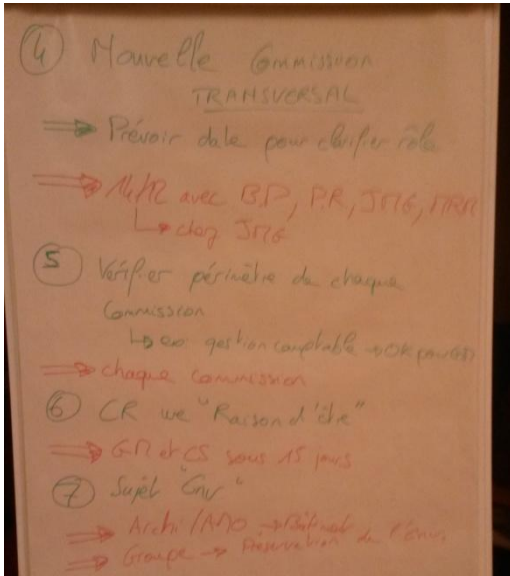 ④ Nouvelle Commission
TRANSVERSAL
⇒ Prévoir date pour clarifier rôle
⇒ 14/12 avec BP, P.R, JMG, MRM
↳ chez JMG
⑤ Vérifier périmètre de chaque
Commission
↳ ex gestion comptable → OK pour
⇒ chaque commission
⑥ CR we "Raison d'être"
⇒ GM et CS sous 15 jours
⑦ Sujet "Env"
⇒ Archi/AMO → Bâtiment
⇒ Groupe → Préservation de l'Env.